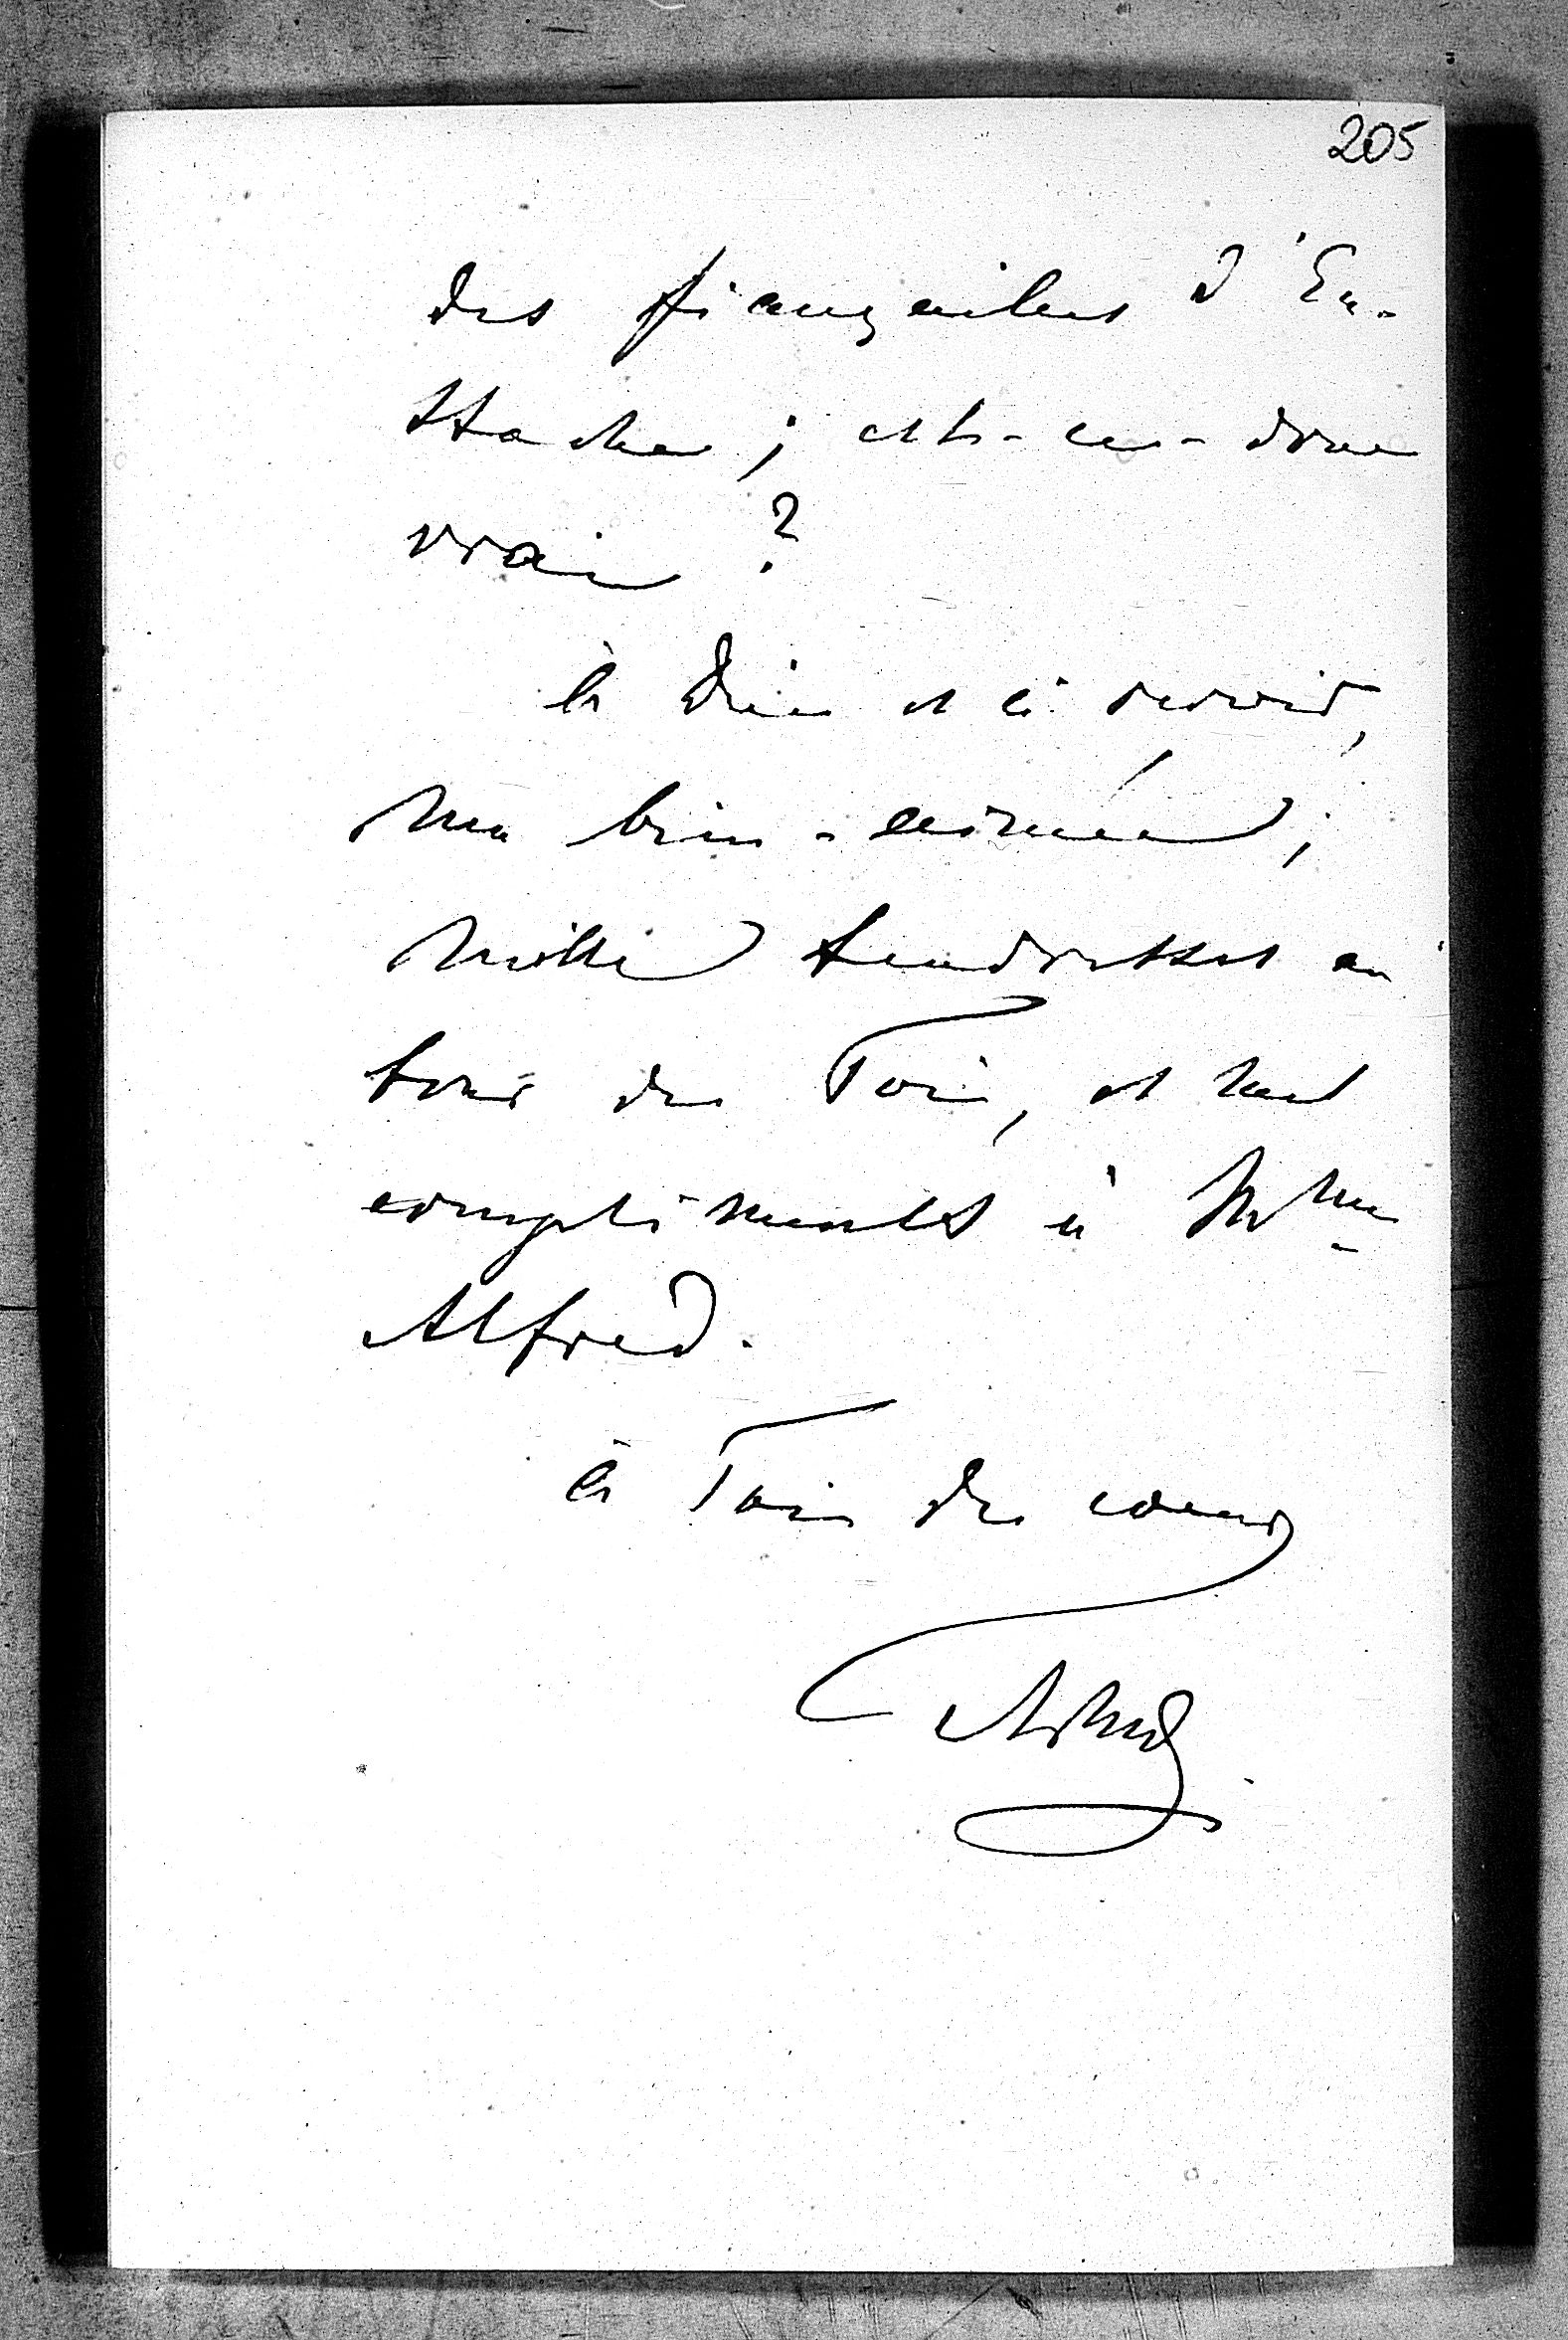 205
des fiançailles d'Eu-
stache ; est-ce-donc
vrai ?
à Dieu et à revoir,
Ma bien-aimée ;
Mille tendresses au
tour de Toi, et mes
compliments à Mme
Alfred.
à Toi de coeur